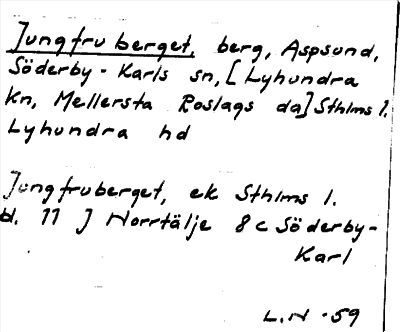 Jungfruberget, berg, Aspsund,
Söderby-Karls sn, [Lyhundra
kn, Mellersta Roslags da] Sthlms l.
Lyhundra hd
Jungfruberget, ek Sthlms l.
bl. 11 J Norrtälje 8c Söderby-
Karl
L.N -59